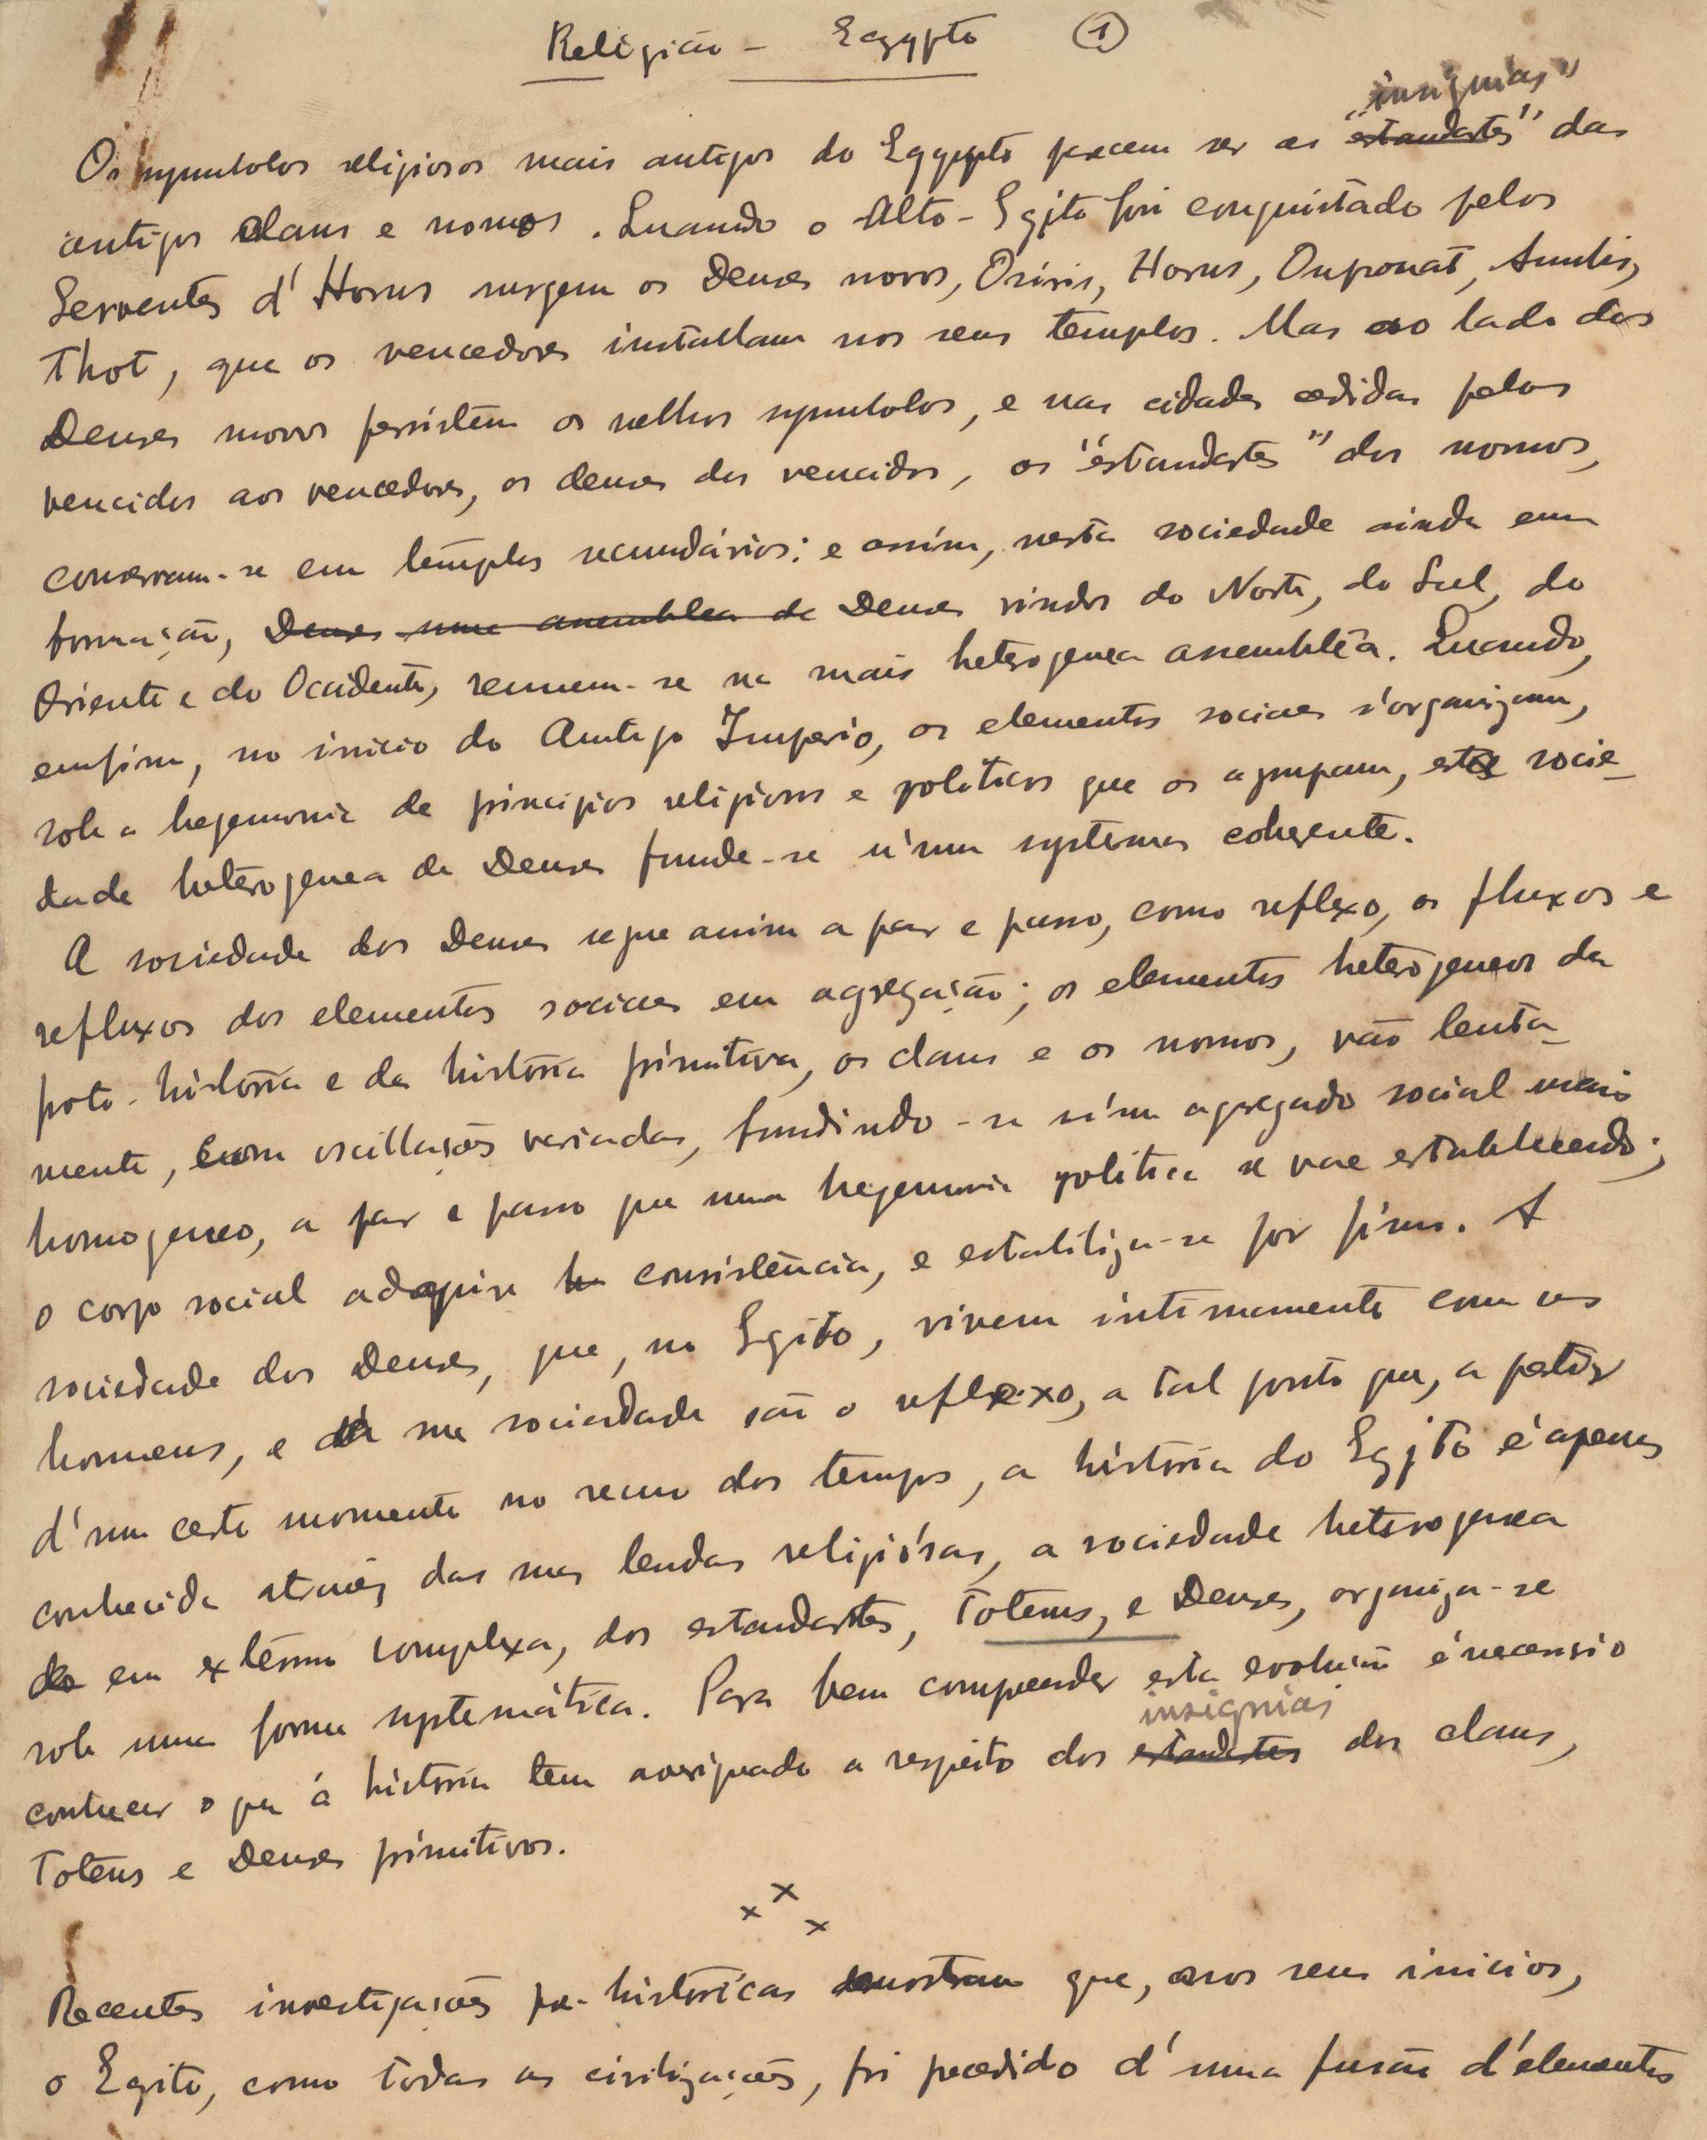 Religião - Egypto 1
"insignias"
Os symbolos religiosos mais antigos do Egypto parecem ser as "estandartes" das
antigos clans e nomos. Quando o Alto-Egito foi conquistado pelos
Serventes d'Horus surgem os Deuses novos, Osiris, Horus, Oupouat, Anubis,
Thot, que os vencedores installam nos seus templos. Mas ao lado dos
Deuses novos persistem os velhos symbolos, e nas cidades cedidas pelos
vencidos aos vencedores, os deuses dos vencidos, os "estandartes" dos nomos,
conservam-se em templos secundários: e assim, nesta sociedade ainda em
formação, Deuses uma assemblea de Deuses vindos do Norte, do Sul, do
Oriente e do Occidente, reunem-se na mais heterogenea assembléa. Quando,
emfim, no inicio do Antigo Imperio, os elementos sociaes s'organizam,
sob a hegemonia de principios religiosos e politicos que os agrupam, esta socie-
dade heterogenea de Deuses funde-se n'um systema coherente.
A sociedade dos Deuses segue assim a par e passo, como reflexo, os fluxos e
refluxos dos elementos sociaes em agregação; os elementos heterogeneos da
proto-história e da história primitiva, os clans e os nomos, vão lenta-
mente, com oscillações variadas, fundindo-se n'um agregado social mais
homogeneo, a par e passo que uma hegemonia politica se vae estabelecendo;
o corpo social adquire consistência, e estabiliza-se por fim. A
sociedade dos Deuses, que, no Egito, vivem intimamente com os
homens, e da sua sociedade são o reflexo, a tal ponto que, a partir
d'um certo momento no recuo dos tempos, a história do Egito é apenas
conhecida atravéz das suas lendas religiósas, a sociedade heterogenea
em extremo complexa, dos estandartes, Totems, e Deuses, organiza-se
sob uma forma systemática. Para bem comprender esta evolução é necessário
insignias
conhecer o que a história tem averiguado a respeito dos estandartes dos clans,
Totens e Deuses primitivos.
x x x
Recentes investigações pre-históricas mostram que, nos seus inicios,
o Egito, como todas as civilizações, foi precedido d'uma fusão d'elementos